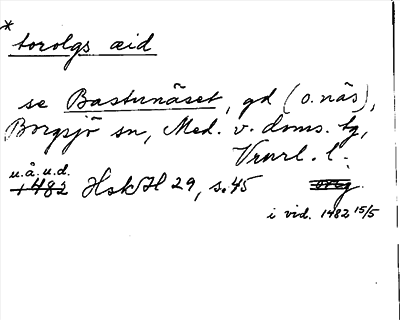 * torolgs æid
se Bastunäset, gd (o. näs),
Borgsjö sn, Med. v. doms. tg,
Vnrrl. l.
u.å.u.d.
1482 HskH 29, s. 45 orig.
i vid. 1482 15/5